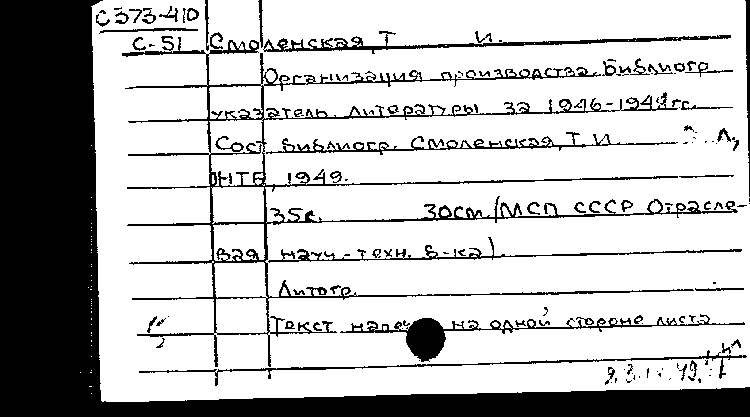 С373-410
С-51 Смоленская, Т И.
Организация производства. Библиогр.
указатель литературы за 1946-1948 гг.
Сост библиогр. Смоленская, Т. И. Л,
НТБ, 1949.
35с. 30см. (МСП СССР Отрасле-
вая науч.-техн. б-ка).
Литогр.
Текст на одной стороне листа